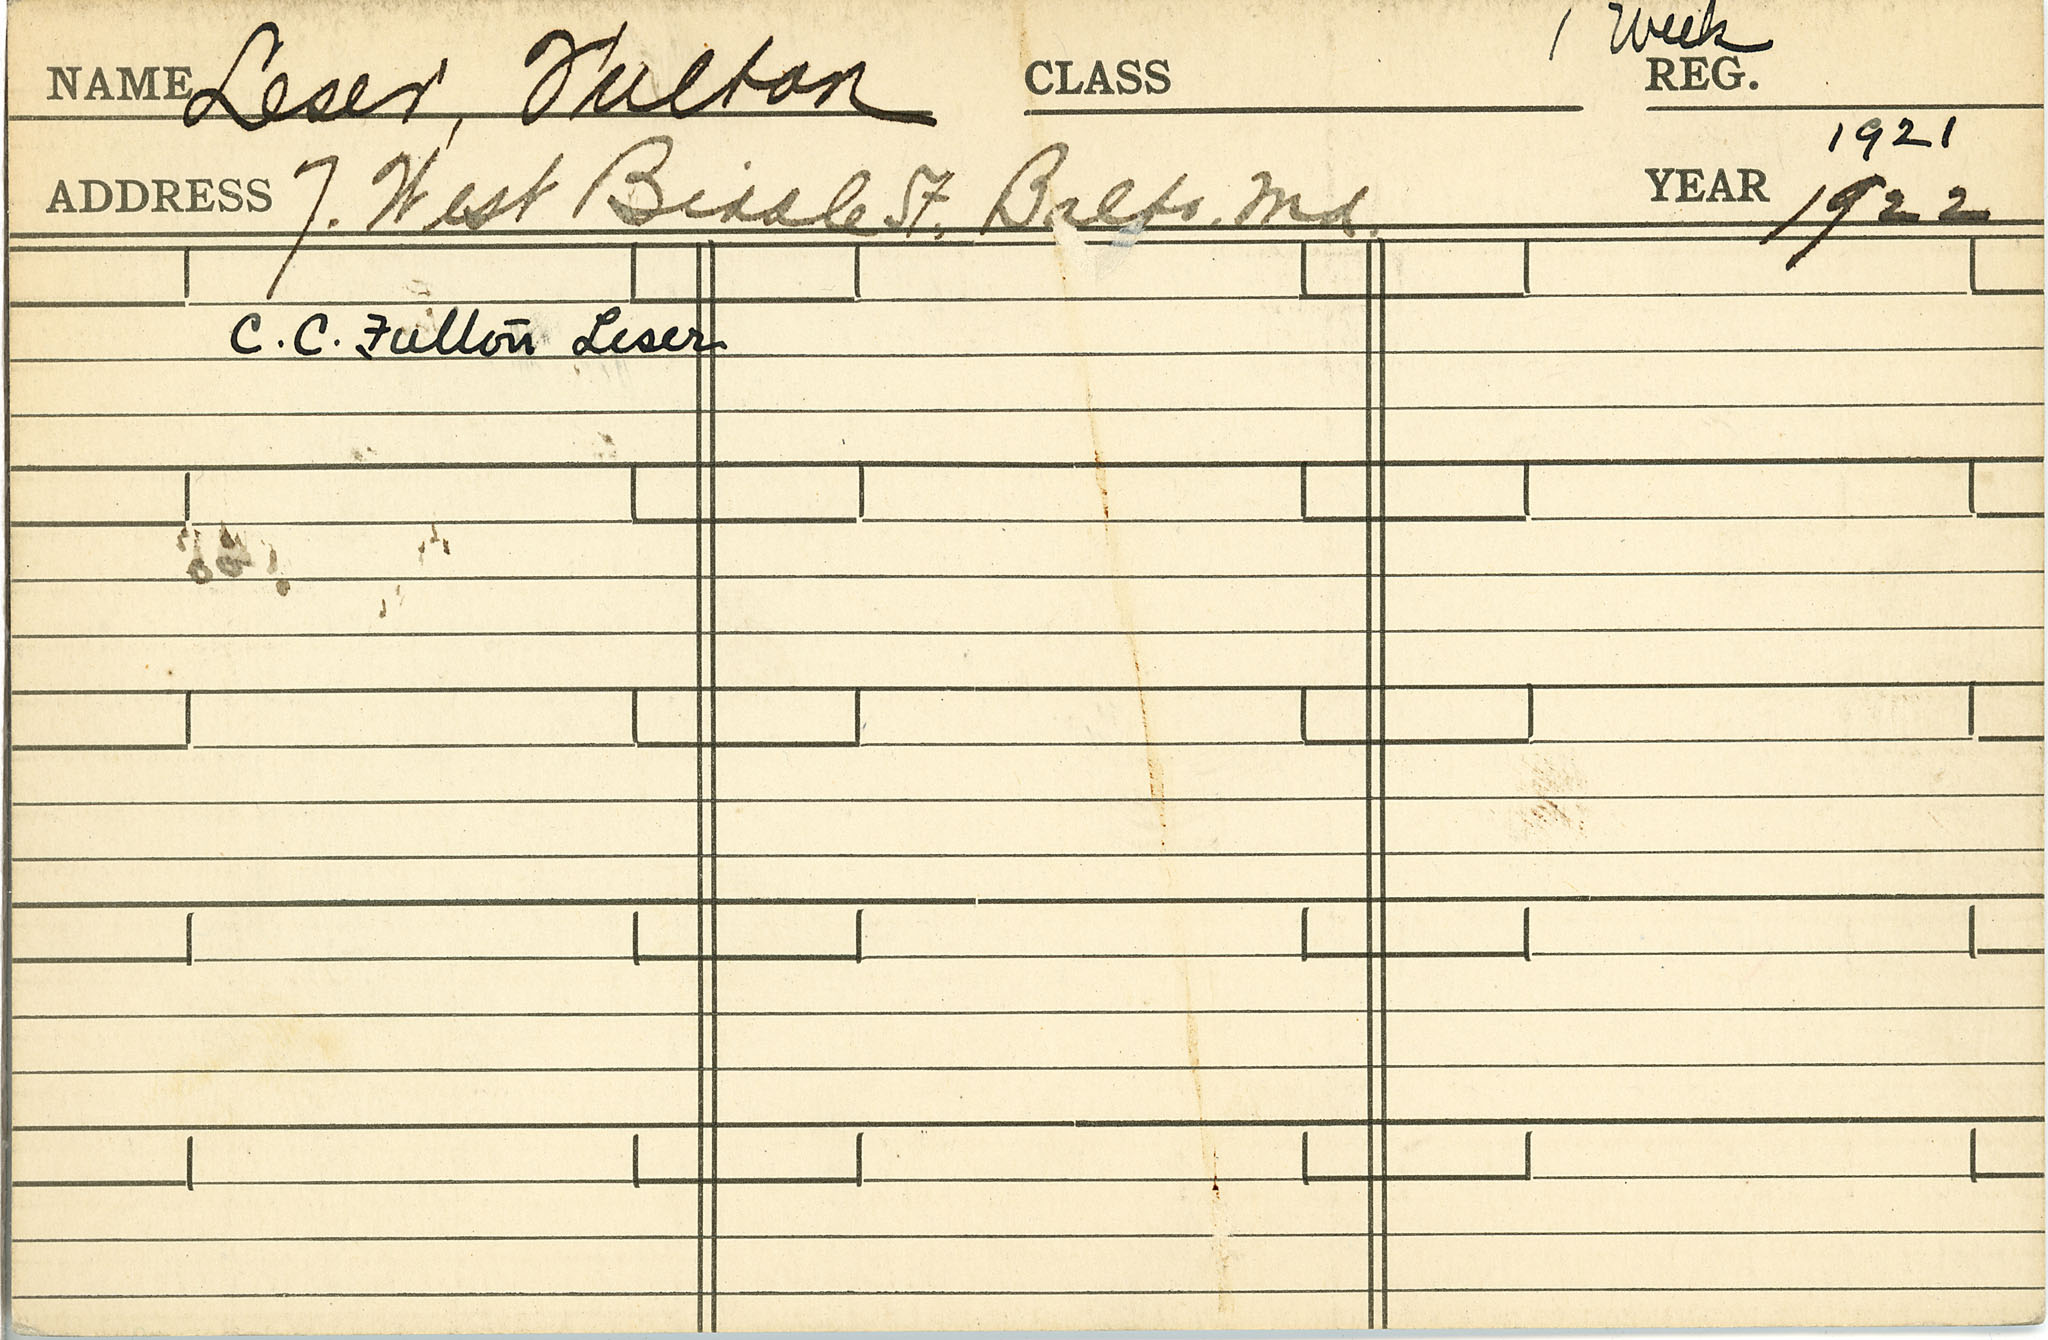 NAME Leser, Fulton CLASS 1 Week REG.
ADDRESS 7. West Biddle St. Balto. Md. YEAR 1921 1922
C. C. Fulton Leser